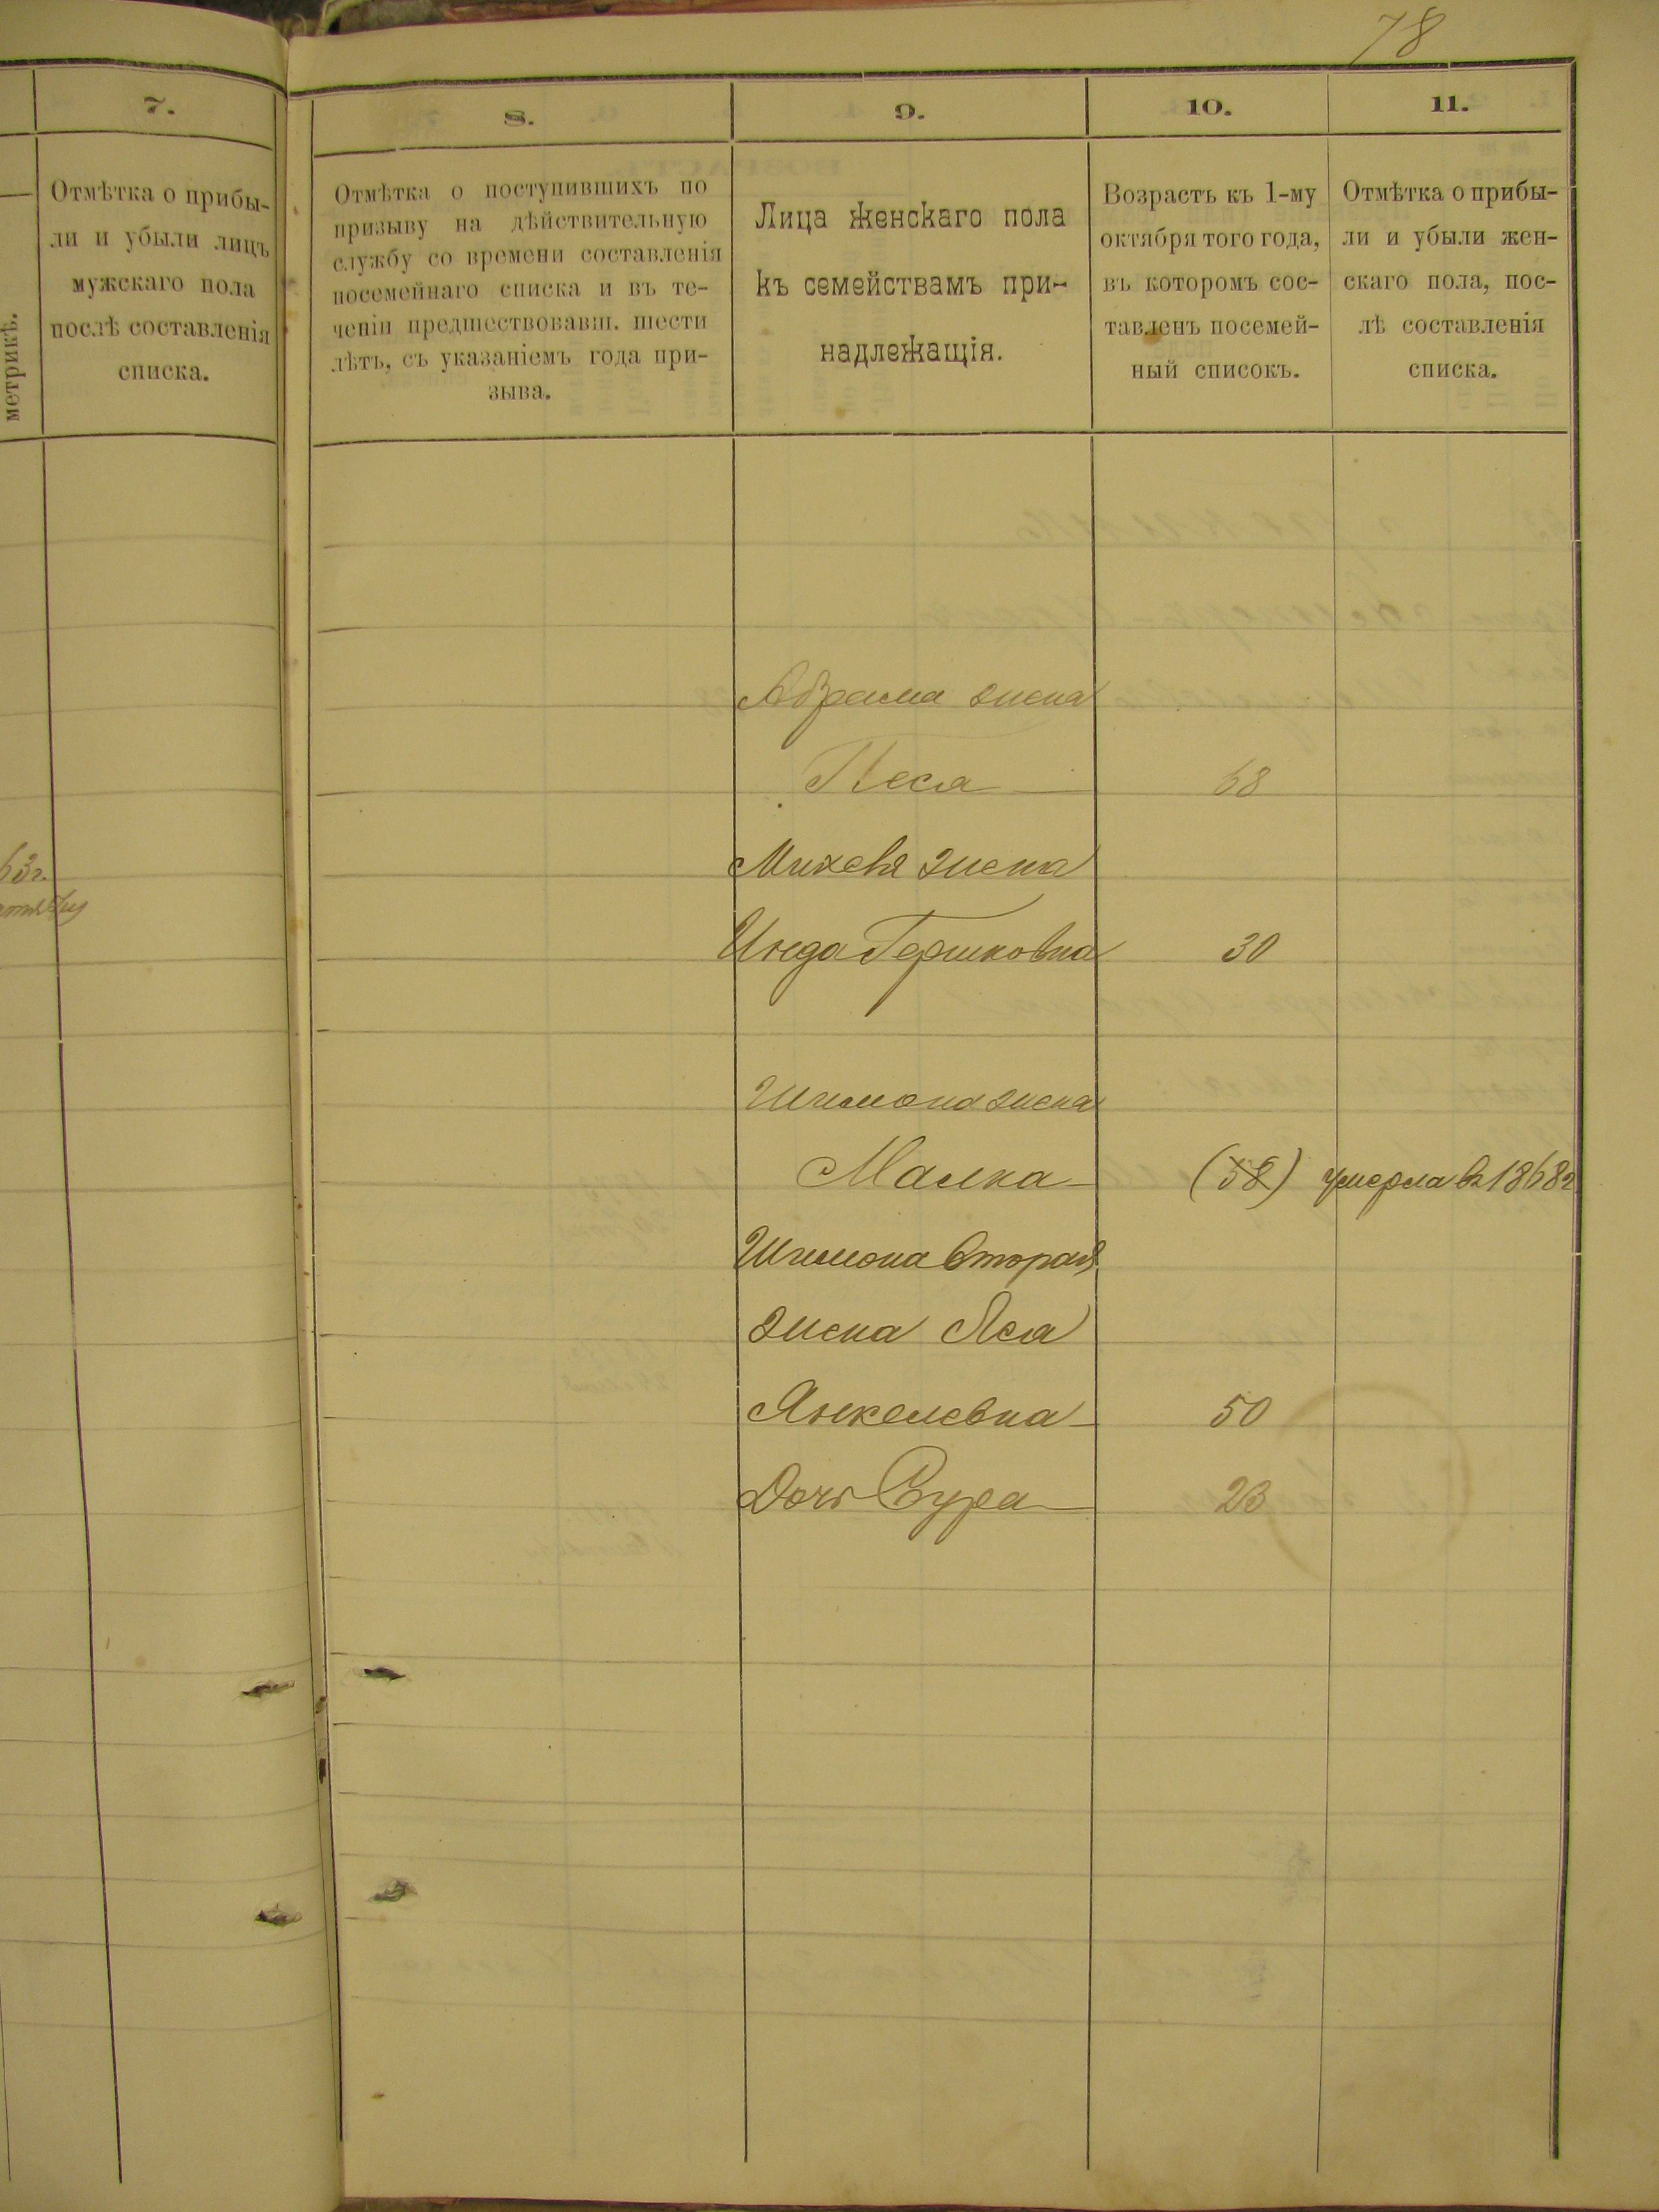 78
7.
8.
9.
10.
11.
метрикѣ.
Отмѣтка о прибы-
ли и убыли лицъ
мужскаго пола
послѣ составленія
списка.
Отмѣтка о поступившихъ по
призыву на дѣйствительную
службу со времени составленія
посемейнаго списка и въ те-
ченіи предшествовавш. шести
лѣтъ, съ указаніемъ года при-
зыва.
Лица женскаго пола
къ семействамъ при-
надлежащія.
Возрастъ къ 1-му
октября того года,
въ которомъ сос-
тавленъ посемей-
ный списокъ.
Отмѣтка о прибы-
ли и убыли жен-
скаго пола, пос-
лѣ составленія
списка.
63г.
Абрама жена
Песя 68
Михеля жена
Гершковна 30
Шимона жена
Малка (58) умерла в 1868г
Шимона вторая
жена Леа
Янкелевна 50
Дочь Сура 23